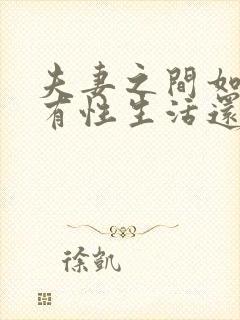 夫妻之間如
有性生活還
徐凱